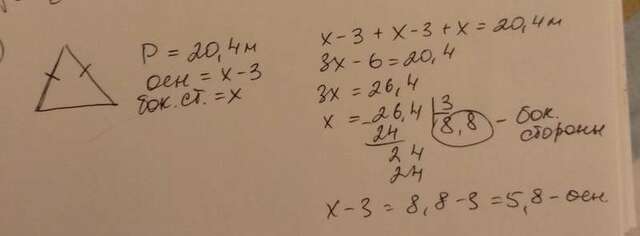 P = 20,4м
осн = x-3
бок.ст. = x
x-3 + x-3 + x = 20,4м
3x-6 = 20,4
3x = 26,4
x = 26,4 | 3
24 8,8 - бок. стороны
24
24
x-3 = 8,8-3 = 5,8 - осн.